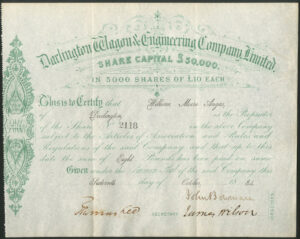 Darlington Wagon & Engineering Company, Limited.
SHARE CAPITAL £50,000.
IN 5000 SHARES OF £10 EACH
This is to Certify that William Muir Angas
of Darlington is the Proprietor
of the Share 2118 in the above Company
subject to the Articles of Association and Rules and
Regulations of the said Company and that up to this
date the sum of Eight Pounds has been paid on same
Given under the Common Seal of the said Company this
day of October 18
SECRETARY
James Wilson